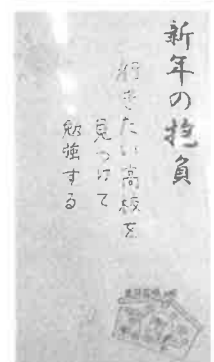 新年の抱負
行きたい高校を
見つけて
勉強する